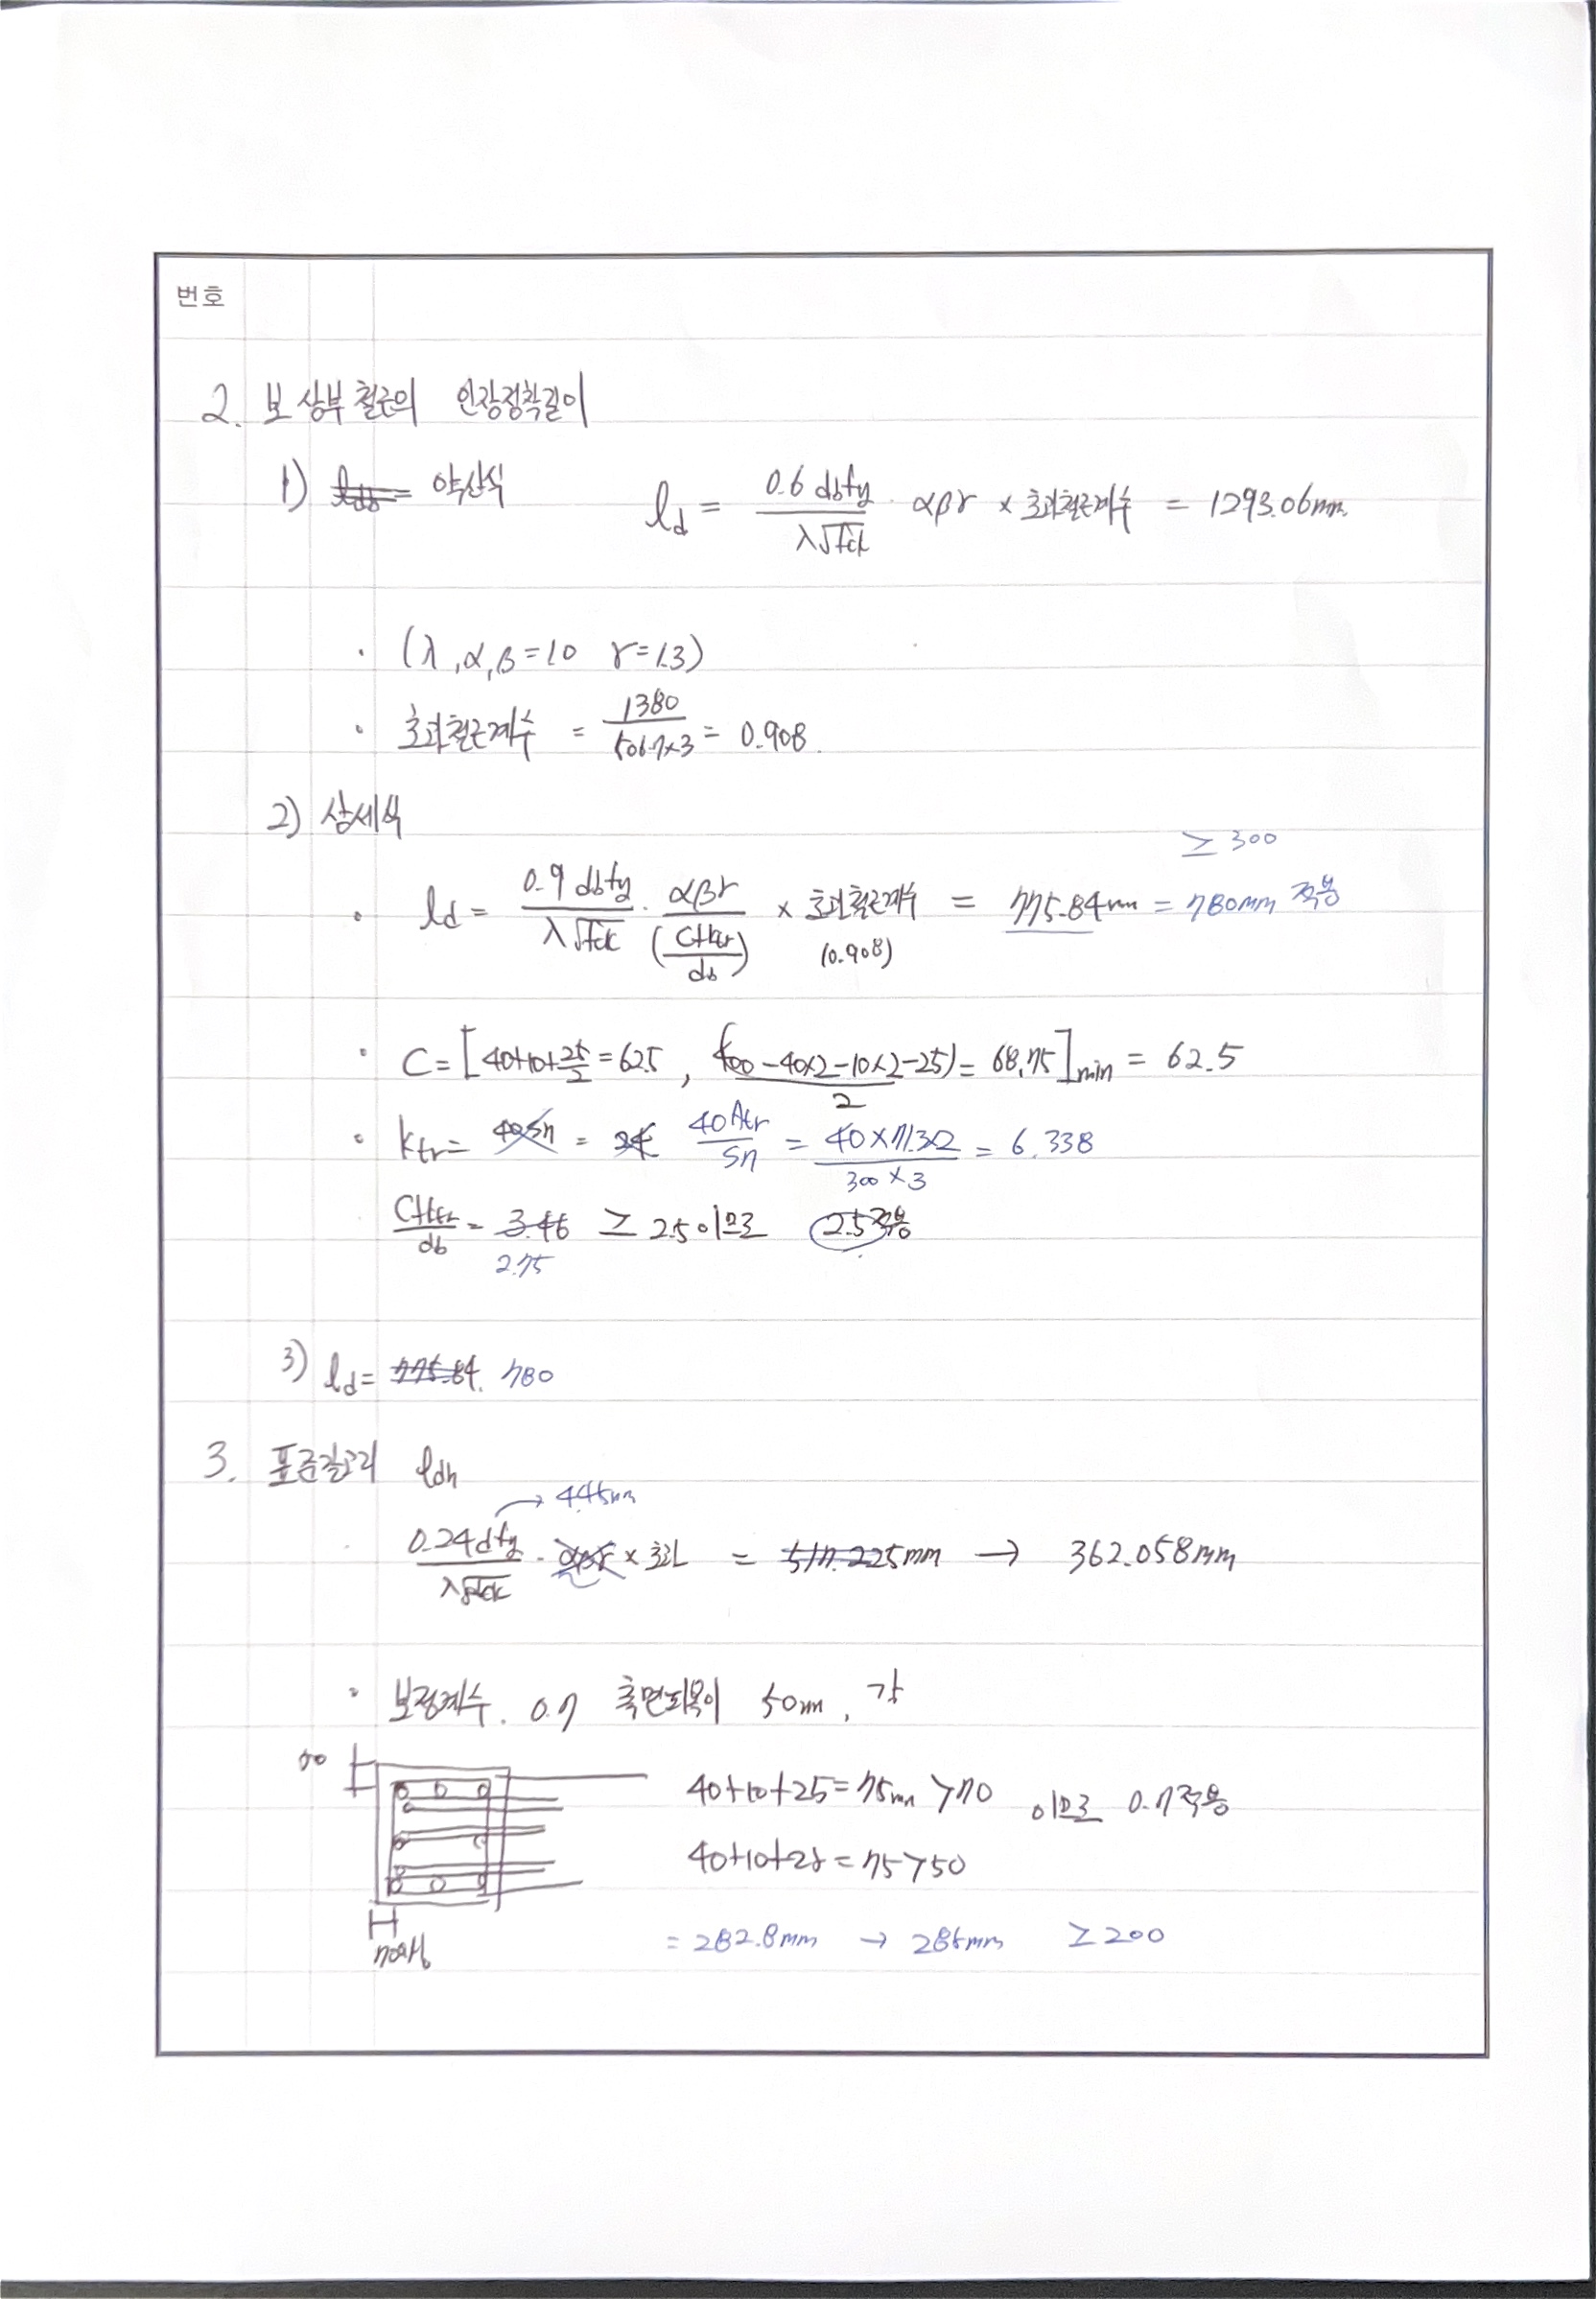 번호
2. 보 상부 철근의 인장정착길이
1) 약산식 ld = 0.6 db fy / λ√fck · αβγ × 초과철근계수 = 1293.06mm.
· (λ, α, β = 1.0 γ = 1.3)
· 초과철근계수 = 1380 / 506.7×3 = 0.908
2) 상세식
≥ 300
· ld = 0.9 db fy / λ√fck · αβγ / (C+ktr / db) × 초과철근계수 (0.908) = 775.84mm = 780mm 적용
· C = [40+10+25/2 = 62.5, (200-40×2-10×2-25) / 2 = 68.75]min = 62.5
· ktr = 40Atr / sn = 40×71.3×2 / 300×3 = 6.338
C+ktr / db = 3.46 ≥ 2.5 이므로 2.5적용
2.75
3) ld = 775.84. 780
3. 표준갈고리 ldh
→ 445mm
0.24 d fy / λ√fck · αβγ × 초과 = 517.225mm → 362.058mm
· 보정계수. 0.7 측면피복이 50mm, 갈
50
40+10+25 = 75mm > 70 이므로 0.7적용
40+10+25 = 75 > 50
= 282.8mm → 285mm ≥ 200
70이상